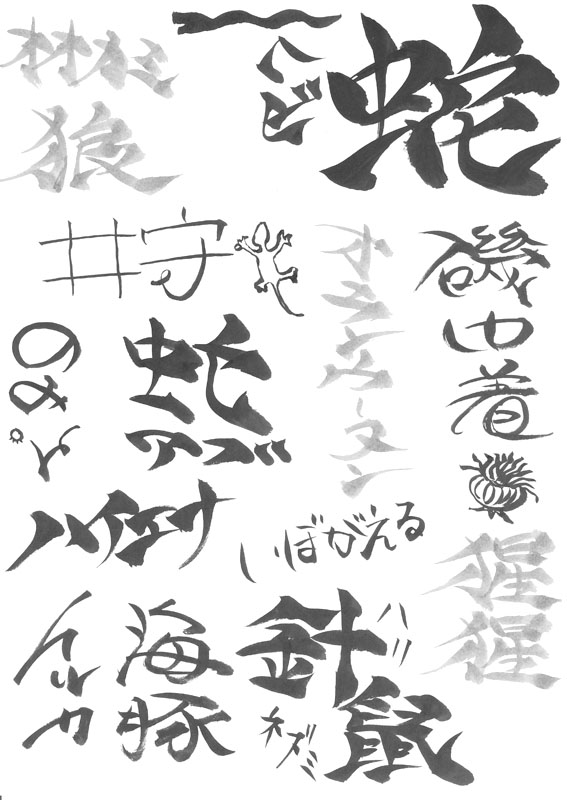 オオカミ
狼
ヘビ
蛇
井守
オランウータン
磯巾着
虻
アブ
ハイエナ
いぼがえる
猩猩
イルカ
海豚
針鼠
ハリ
ネズミ